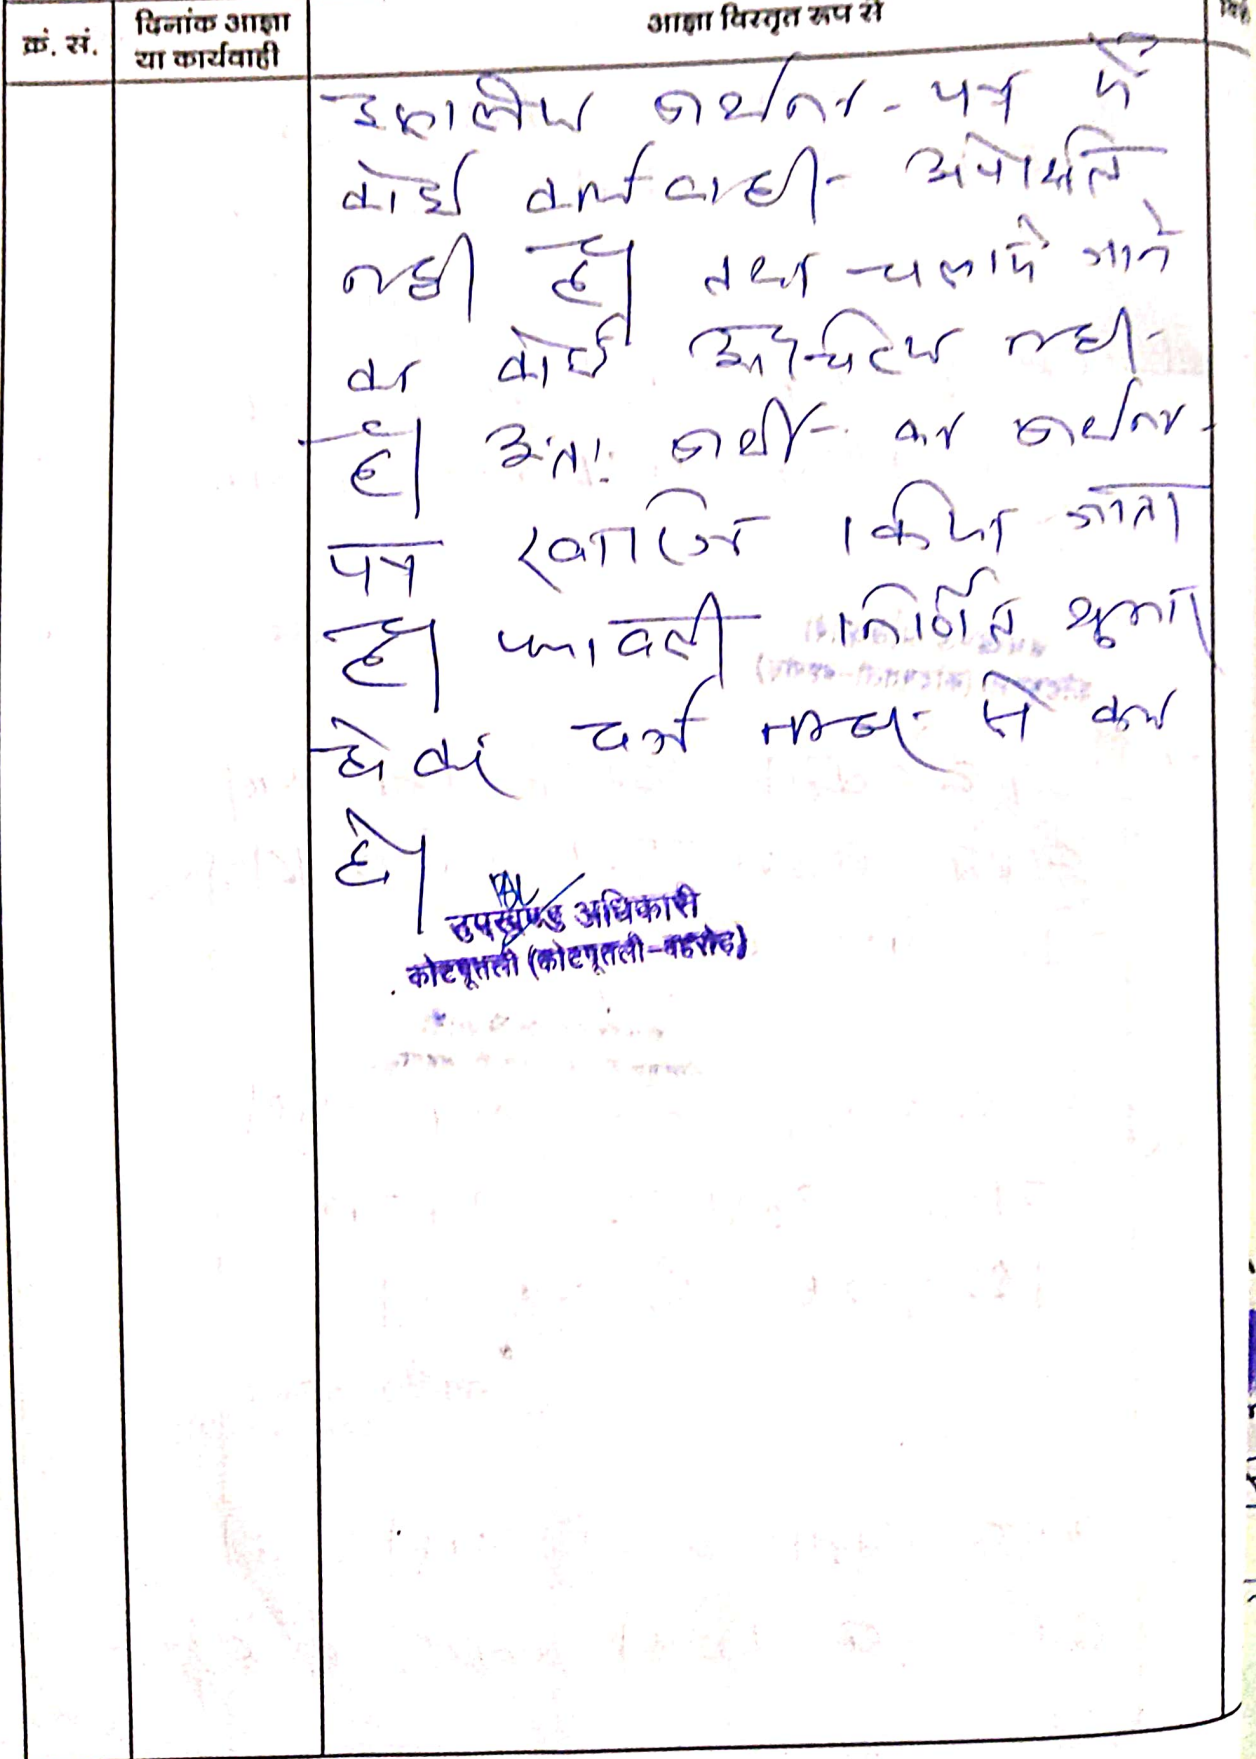 क्रं. सं.
दिनांक आज्ञा
या कार्यवाही
आज्ञा विस्तृत रूप से
प्रार्थना - पत्र में
कोई कार्यवाही - अपेक्षित
नहीं है। तथा चलाये जाने
का कोई औचित्य नहीं -
है। अतः प्रार्थी - का प्रार्थना -
पत्र खारिज किया जाता
है। पत्रावली निर्णित शुमार
होकर दर्ज नम्बर से कम
हो।
उपखण्ड अधिकारी
कोटपूतली (कोटपूतली-बहरोड़)